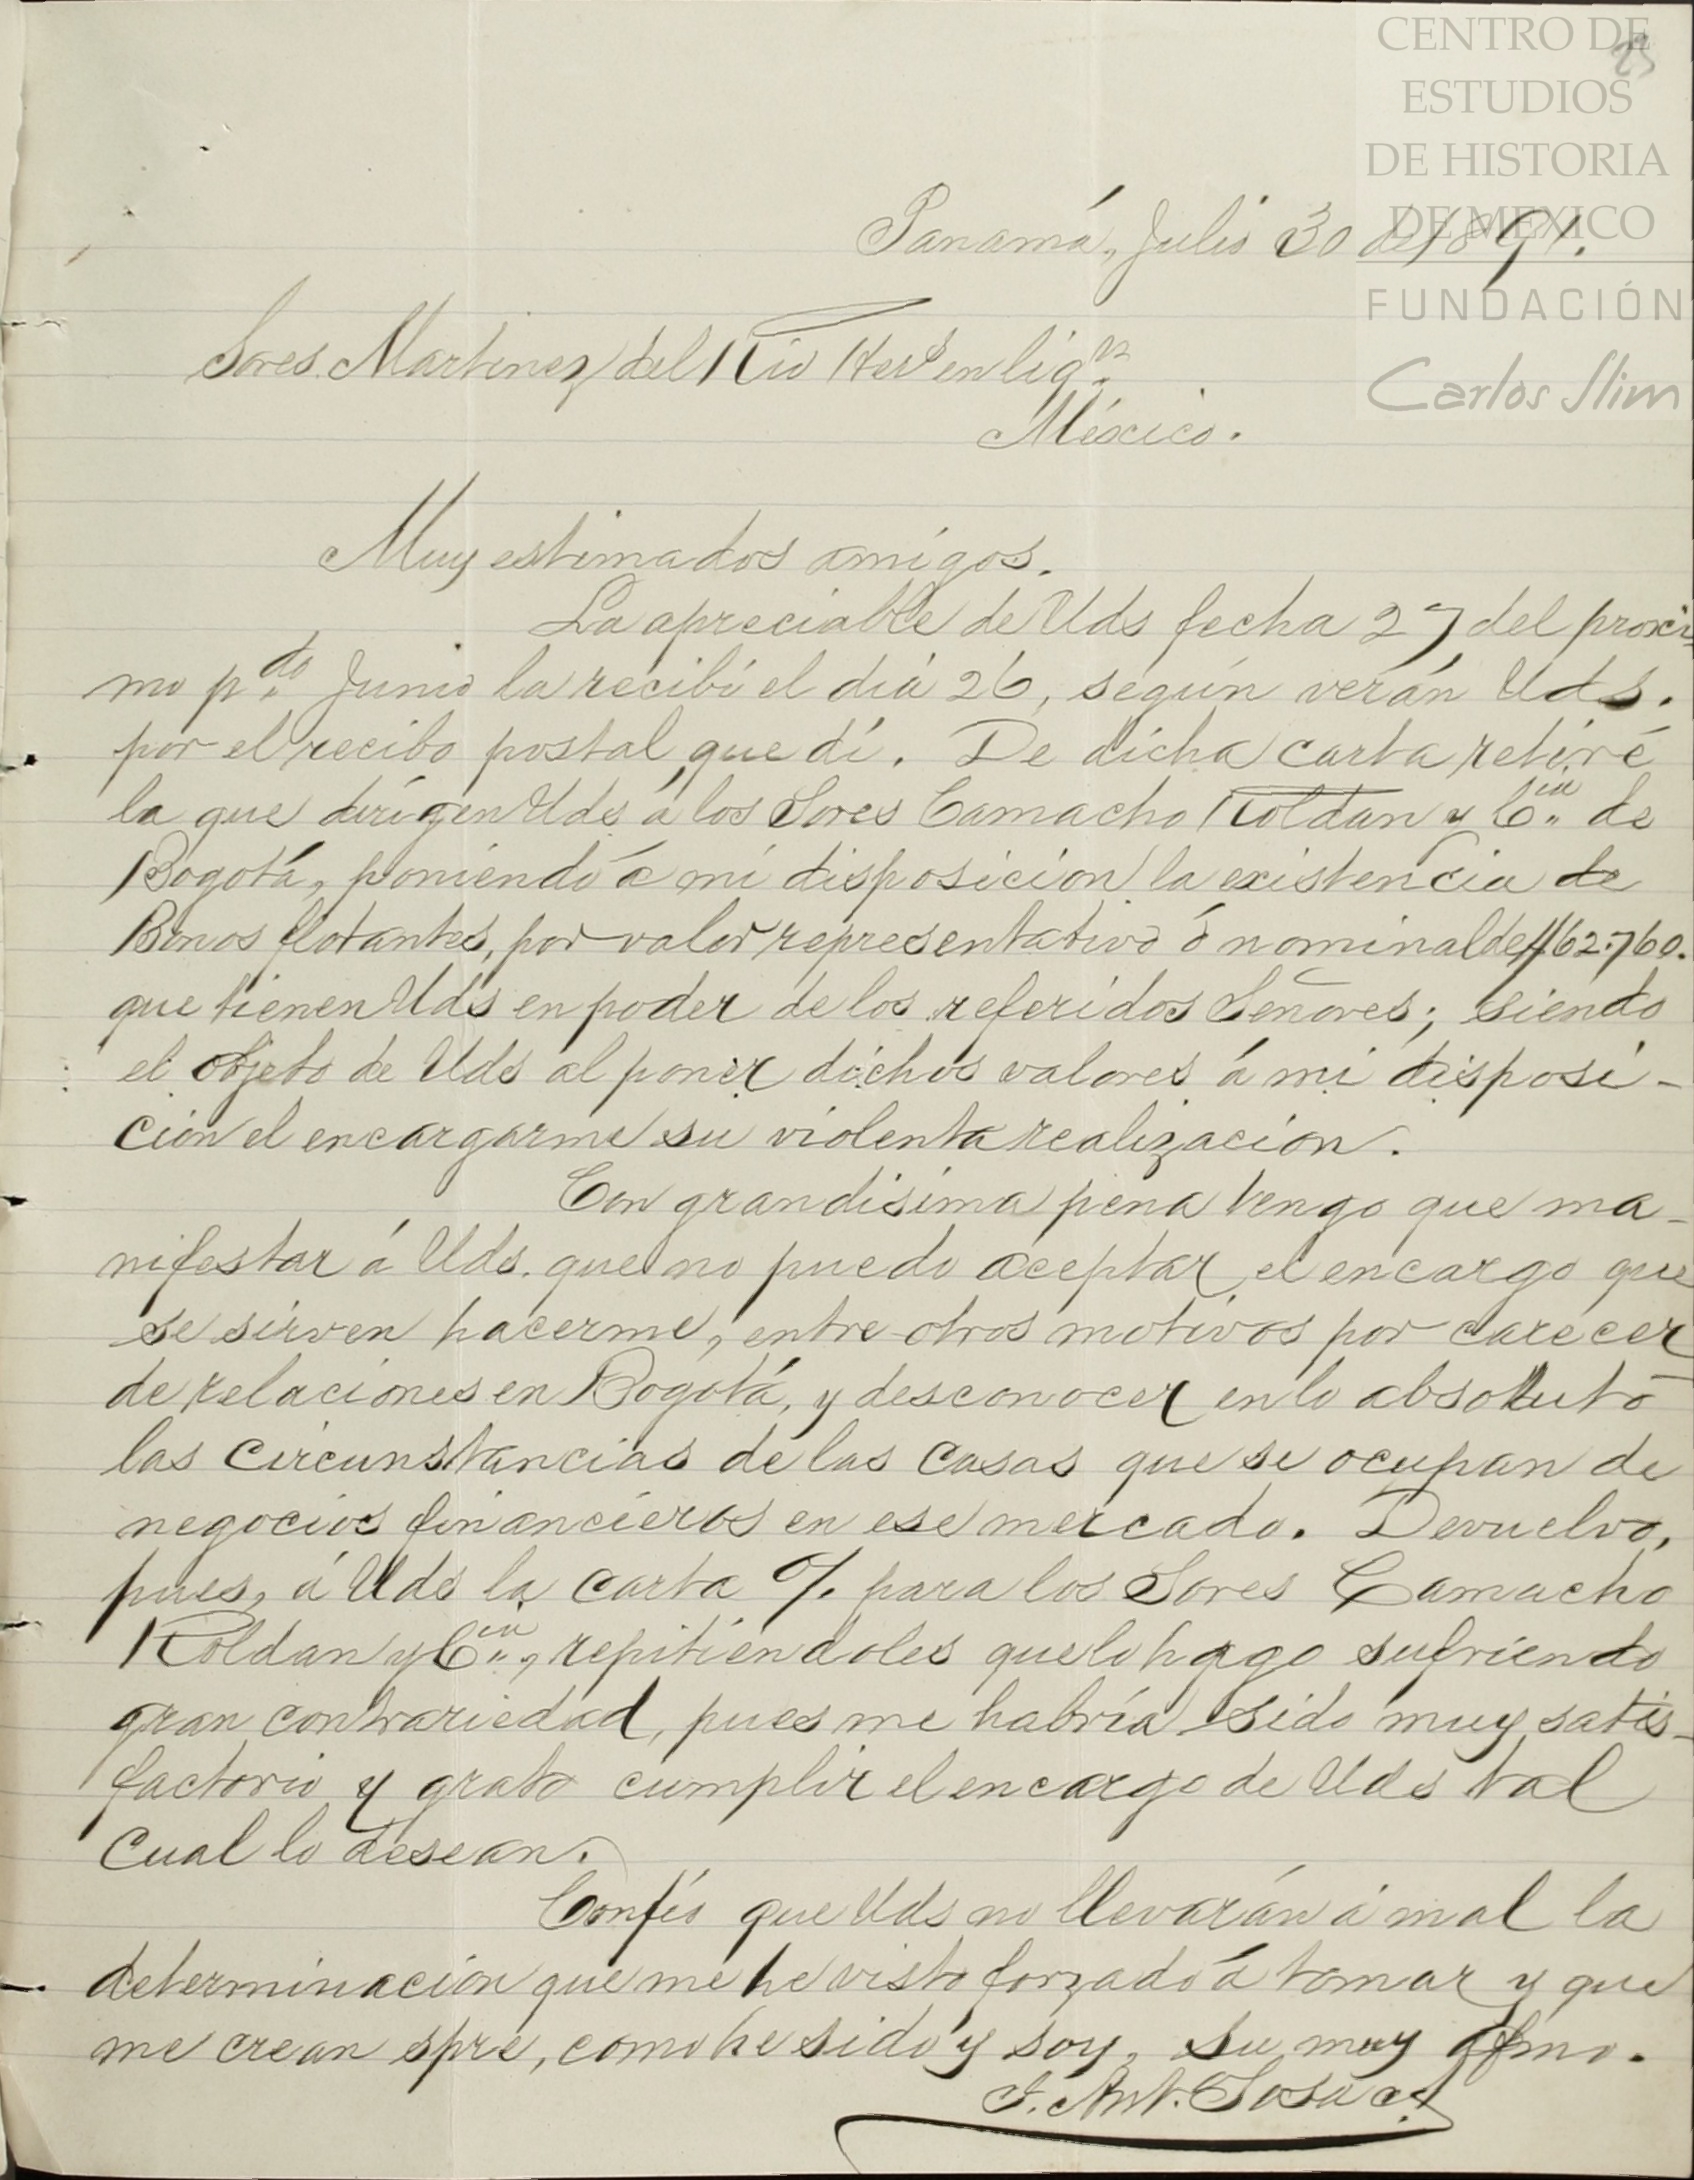 CENTRO DE
ESTUDIOS
DE HISTORIA
DE MEXICO
FUNDACIÓN
Carlos Slim
Panamá, Julio 30 de 1891.
Sores. Martinez del Rio Hers en liqn.
México.
Muy estimados amigos.
La apreciable de Uds fecha 27 del proxi-
mo pdo. Junio la recibí el dia 26, según verán Uds.
por el recibo postal que dí. De dicha carta retiré
la que dirígen Uds á los Sores Camacho Roldan y Cia de
Bogotá, poniendo á mi disposicion la existencia de
Bonos flotantes, por valor representativo ó nominal de $62.760.
que tienen Uds en poder de los referidos Señores; siendo
el objeto de Uds al poner dichos valores á mi disposi-
cion el encargarme su violenta realizacion.
Con grandisima pena tengo que ma-
nifestar á Uds. que no puedo aceptar el encargo que
se sirven hacerme, entre otros motivos por carecer
de relaciones en Bogotá, y desconocer en lo absoluto
las circunstancias de las casas que se ocupan de
negocios financieros en ese mercado. Devuelvo,
pues, á Uds la carta o/. para los Sores Camacho
Roldan y Cia, repitiéndoles que lo hago sufriendo
gran contrariedad, pues me habría sido muy satis-
factorio y grato cumplir el encargo de Uds tal
cual lo desean.
Confío que Uds no llevarán á mal la
determinacion que me he visto forzado á tomar y que
me crean spre, como he sido y soy, su muy afmo.
J. Ant. Sosa